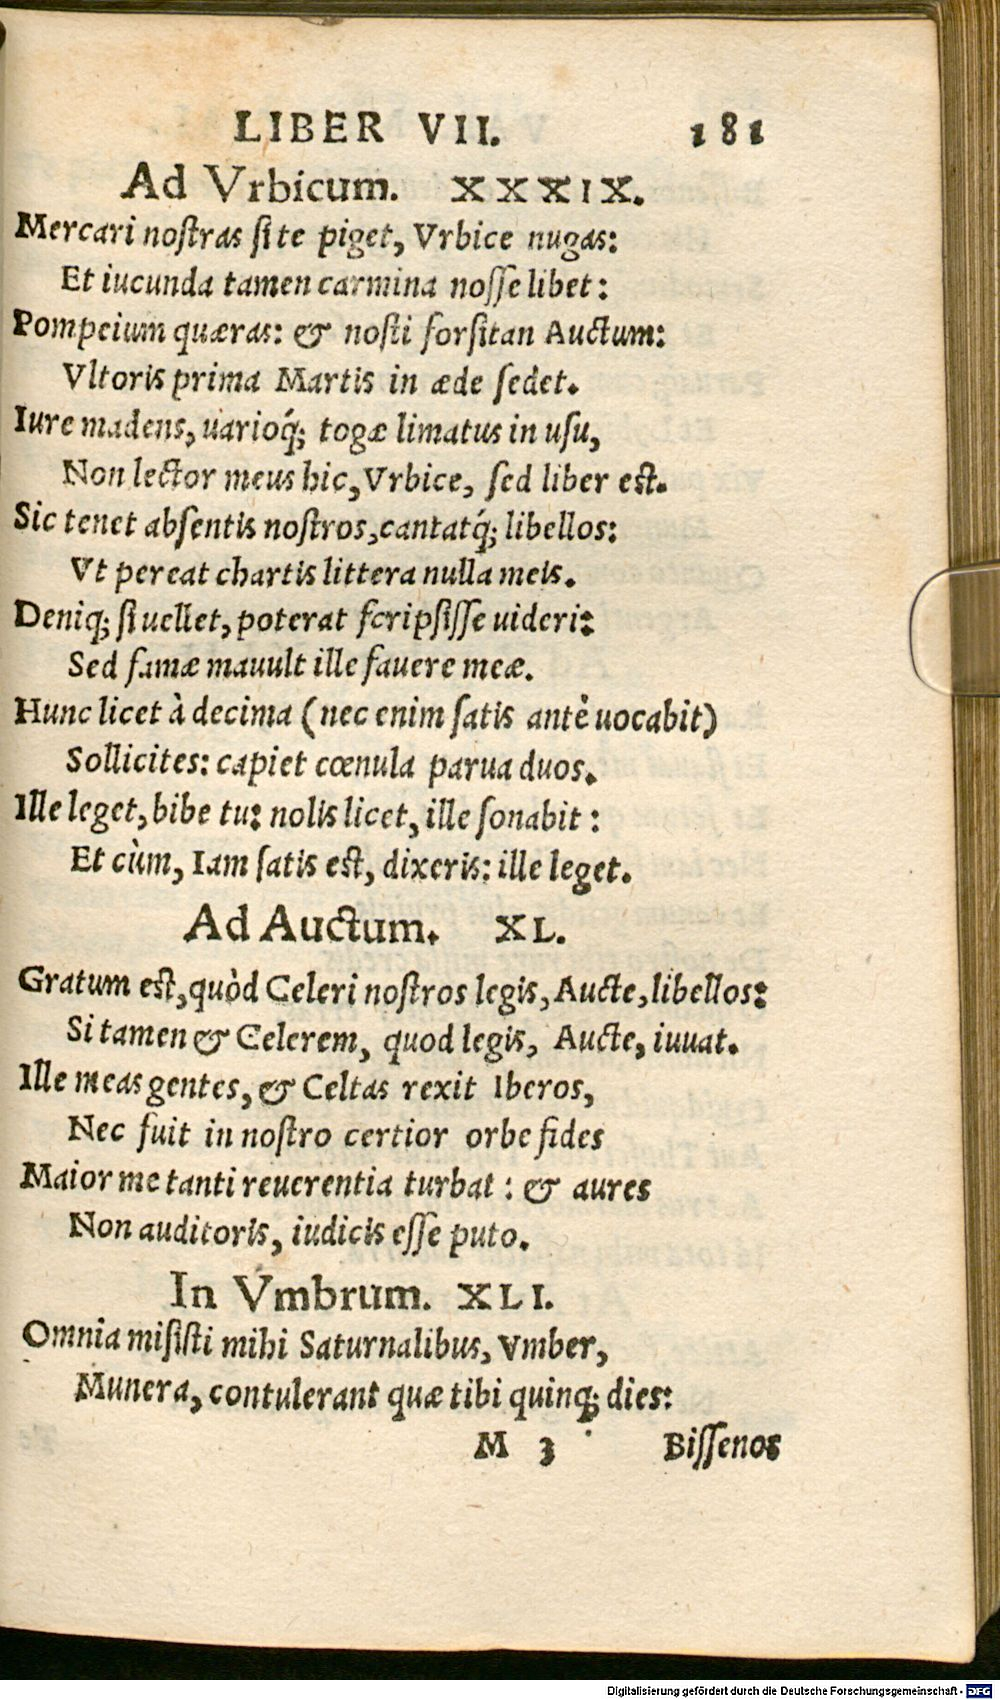 LIBER VII. 181
Ad Vrbicum. XXXIX.
Mercari noſtras ſi te piget, Vrbice nugas:
Et iucunda tamen carmina noſſe libet:
Pompeium quæras: & noſti forſitan Auctum:
Vltoris prima Martis in æde ſedet.
Iure madens, uarioq́; togæ limatus in uſu,
Non lector meus hic, Vrbice, ſed liber eſt.
Sic tenet abſentis noſtros, cantatq́; libellos:
Vt pereat chartis littera nulla meis.
Deniq; ſi uellet, poterat ſcripſiſſe uideri:
Sed famæ mauult ille fauere meæ.
Hunc licet à decima (nec enim ſatis antè uocabit)
Sollicites: capiet cœnula parua duos.
Ille leget, bibe tu: nolis licet, ille ſonabit:
Et cùm, Iam ſatis eſt, dixeris: ille leget.
Ad Auctum. XL.
Gratum eſt, quòd Celeri noſtros legis, Aucte, libellos:
Si tamen & Celerem, quod legis, Aucte, iuuat.
Ille meas gentes, & Celtas rexit Iberos,
Nec fuit in noſtro certior orbe fides
Maior me tanti reuerentia turbat: & aures
Non auditoris, iudicis eſſe puto.
In Vmbrum. XLI.
Omnia miſiſti mihi Saturnalibus, Vmber,
Munera, contulerant quæ tibi quinq; dies:
M 3 Biſſenos
Digitalisierung gefördert durch die Deutsche Forschungsgemeinschaft - DFG